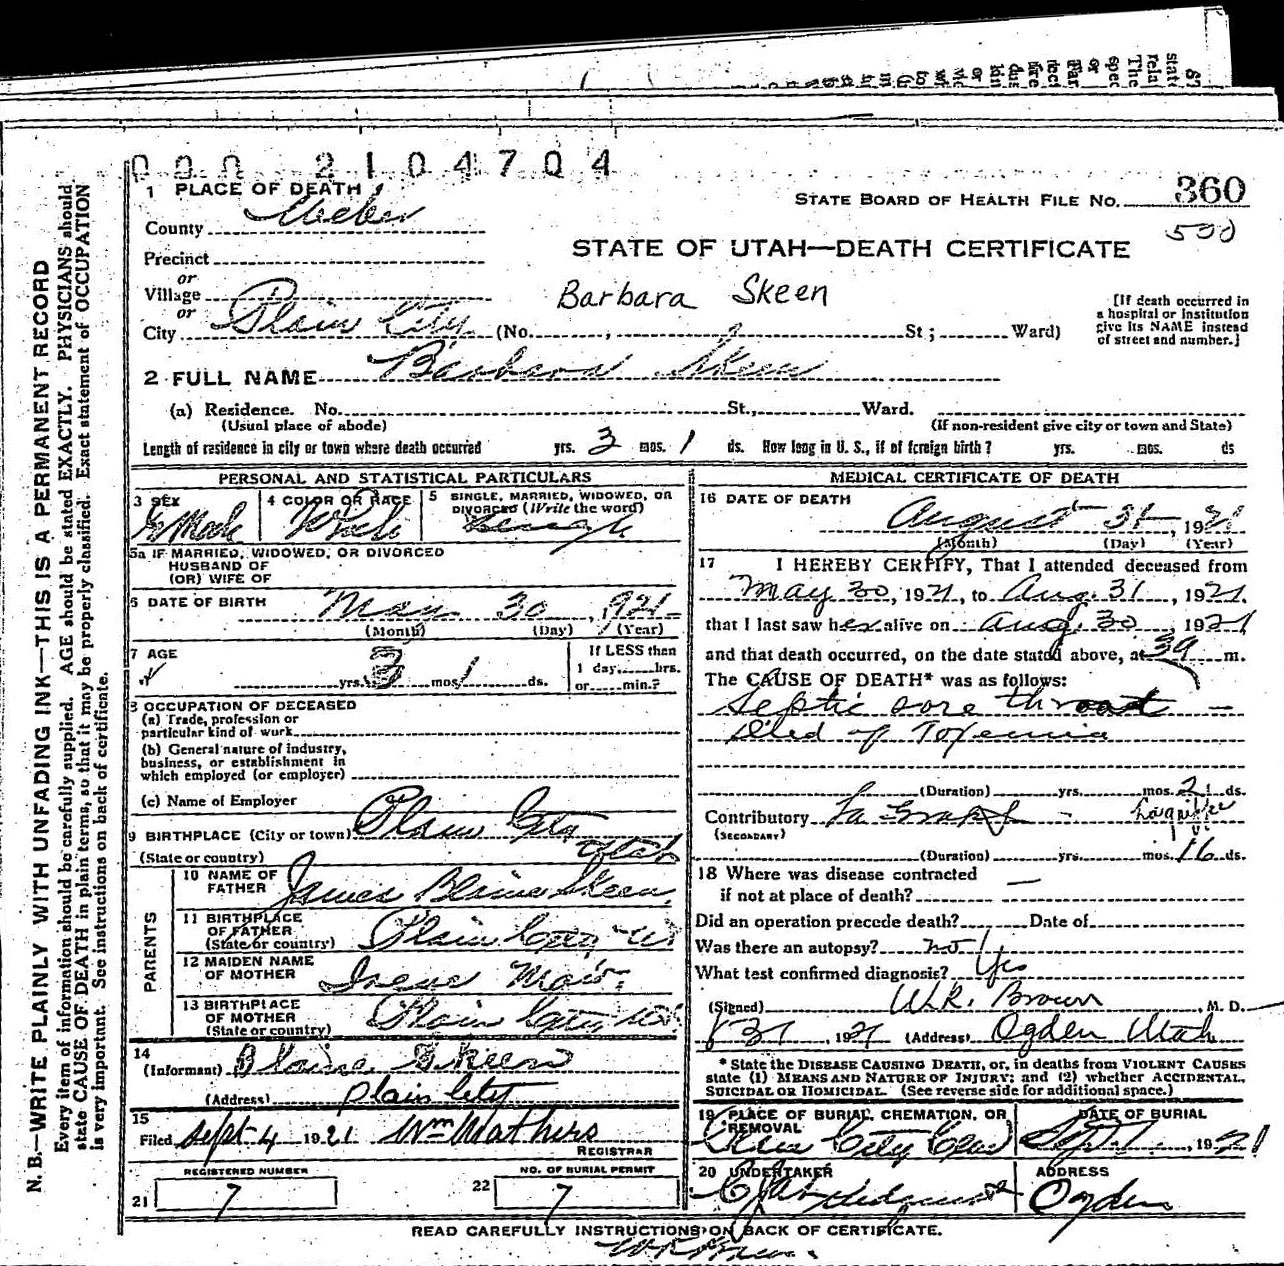 000 2104704
1 PLACE OF DEATH
STATE BOARD OF HEALTH FILE NO. 360
County Weber
500
STATE OF UTAH—DEATH CERTIFICATE
Precinct
or
Village
Barbara Skeen
or
City Plain City (No. , St; Ward)
[If death occurred in
a hospital or institution
give its NAME instead
of street and number.]
2 FULL NAME Barbara Skeen
(a) Residence. No. St., Ward.
(Usual place of abode) (If non-resident give city or town and State)
Length of residence in city or town where death occurred yrs. 3 mos. 1 ds. How long in U. S., if of foreign birth? yrs. mos. ds
N. B.—WRITE PLAINLY WITH UNFADING INK—THIS IS A PERMANENT RECORD
Every item of information should be carefully supplied. AGE should be stated EXACTLY. PHYSICIANS should
state CAUSE OF DEATH in plain terms, so that it may be properly classified. Exact statement of OCCUPATION
is very important. See instructions on back of certificate.
PERSONAL AND STATISTICAL PARTICULARS
3 SEX
4 COLOR OR RACE
5 SINGLE, MARRIED, WIDOWED, OR
DIVORCED (Write the word)
5a IF MARRIED, WIDOWED, OR DIVORCED
HUSBAND OF
(OR) WIFE OF
6 DATE OF BIRTH May 30, 1921
(Month) (Day) (Year)
7 AGE
yrs. 3 mos. 1 ds.
If LESS than
1 day, hrs.
or min.?
8 OCCUPATION OF DECEASED
(a) Trade, profession or
particular kind of work
(b) General nature of industry,
business, or establishment in
which employed (or employer)
(c) Name of Employer
9 BIRTHPLACE (City or town) Plain City
(State or country) Utah
PARENTS
10 NAME OF
FATHER James Blaine Skeen
11 BIRTHPLACE
OF FATHER
(State or country) Plain City Ut
12 MAIDEN NAME
OF MOTHER Irene
13 BIRTHPLACE
OF MOTHER
(State or country) Plain City Ut
14
(Informant) Blaine Skeen
(Address) Plain City
15
Filed Sept 4 1921 Wm Mathers
REGISTRAR
REGISTERED NUMBER
21 7
NO. OF BURIAL PERMIT
22 7
MEDICAL CERTIFICATE OF DEATH
16 DATE OF DEATH
August 31, 1921
(Month) (Day) (Year)
17 I HEREBY CERTIFY, That I attended deceased from
May 30, 1921, to Aug. 31, 1921.
that I last saw her alive on Aug. 30 1921
and that death occurred, on the date stated above, at m.
The CAUSE OF DEATH* was as follows:
Septic sore throat
Died of Toxemia
(Duration) yrs. mos. 21 ds.
Contributory La Grippe
(SECONDARY)
(Duration) yrs. mos. 16 ds.
18 Where was disease contracted
if not at place of death?
Did an operation precede death? Date of
Was there an autopsy? no
What test confirmed diagnosis? Yes
(Signed) W.R. Brown, M. D.
8 31, 1921 (Address) Ogden Utah
* State the DISEASE CAUSING DEATH, or, in deaths from VIOLENT CAUSES
state (1) MEANS AND NATURE OF INJURY; and (2) whether ACCIDENTAL,
SUICIDAL OR HOMICIDAL. (See reverse side for additional space.)
19 PLACE OF BURIAL, CREMATION, OR
REMOVAL
Plain City
DATE OF BURIAL
Sept 1, 1921
20 UNDERTAKER
ADDRESS
Ogden
READ CAREFULLY INSTRUCTIONS ON BACK OF CERTIFICATE.